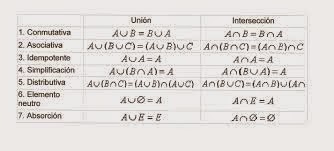 Unión Intersección
1. Conmutativa A∪B = B∪A A∩B = B∩A
2. Asociativa A∪(B∪C)=(A∪B)∪C A∩(B∩C)=(A∩B)∩C
3. Idempotente A∪A = A A∩A = A
4. Simplificación A∪(B∩A) = A A∩(B∪A) = A
5. Distributiva A∪(B∩C)=(A∩B)∪(A∩C) A∩(B∪C)=(A∩B)∪(A∩
6. Elemento neutro A∪Ø = A A∩E = A
7. Absorción A∪E = E A∩Ø=Ø